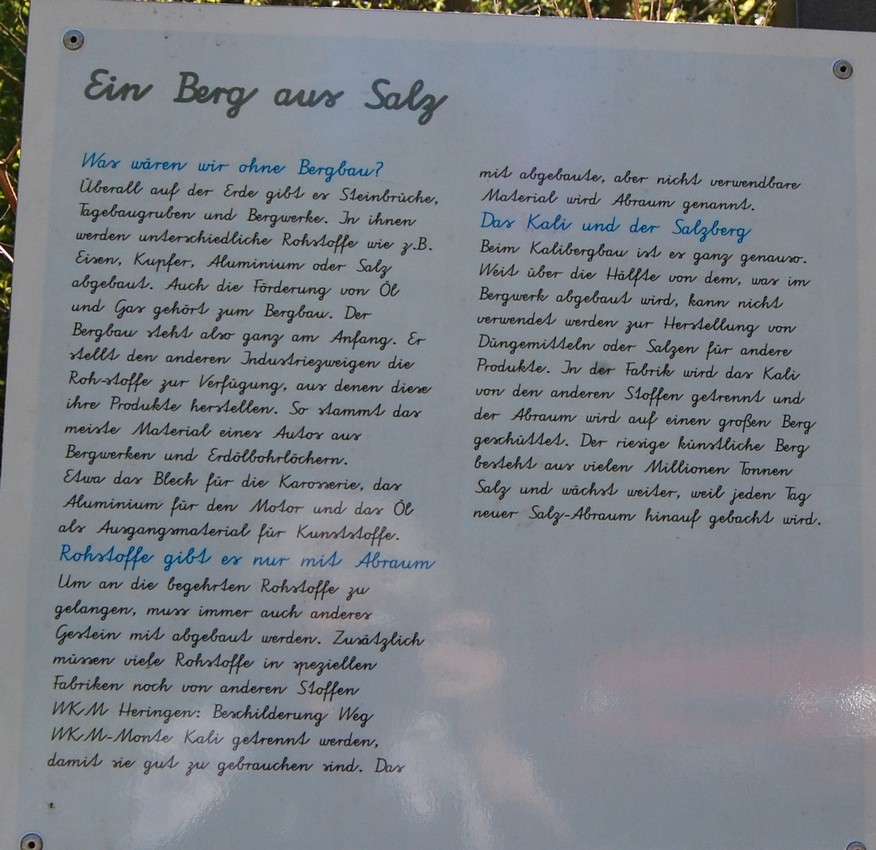 Ein Berg aus Salz
Was wären wir ohne Bergbau?
Überall auf der Erde gibt es Steinbrüche,
Tagebaugruben und Bergwerke. In ihnen
werden unterschiedliche Rohstoffe wie z.B.
Eisen, Kupfer, Aluminium oder Salz
abgebaut. Auch die Förderung von Öl
und Gas gehört zum Bergbau. Der
Bergbau steht also ganz am Anfang. Er
stellt den anderen Industriezweigen die
Roh-stoffe zur Verfügung, aus denen diese
ihre Produkte herstellen. So stammt das
meiste Material eines Autos aus
Bergwerken und Erdölbohrlöchern.
Etwa das Blech für die Karosserie, das
Aluminium für den Motor und das Öl
als Ausgangsmaterial für Kunststoffe.
Rohstoffe gibt es nur mit Abraum
Um an die begehrten Rohstoffe zu
gelangen, muss immer auch anderes
Gestein mit abgebaut werden. Zusätzlich
müssen viele Rohstoffe in speziellen
Fabriken noch von anderen Stoffen
WKM Heringen: Beschilderung Weg
WKM-Monte Kali getrennt werden,
damit sie gut zu gebrauchen sind. Das
mit abgebaute, aber nicht verwendbare
Material wird Abraum genannt.
Das Kali und der Salzberg
Beim Kalibergbau ist es ganz genauso.
Weit über die Hälfte von dem, was im
Bergwerk abgebaut wird, kann nicht
verwendet werden zur Herstellung von
Düngemitteln oder Salzen für andere
Produkte. In der Fabrik wird das Kali
von den anderen Stoffen getrennt und
der Abraum wird auf einen großen Berg
geschüttet. Der riesige künstliche Berg
besteht aus vielen Millionen Tonnen
Salz und wächst weiter, weil jeden Tag
neuer Salz-Abraum hinauf gebacht wird.